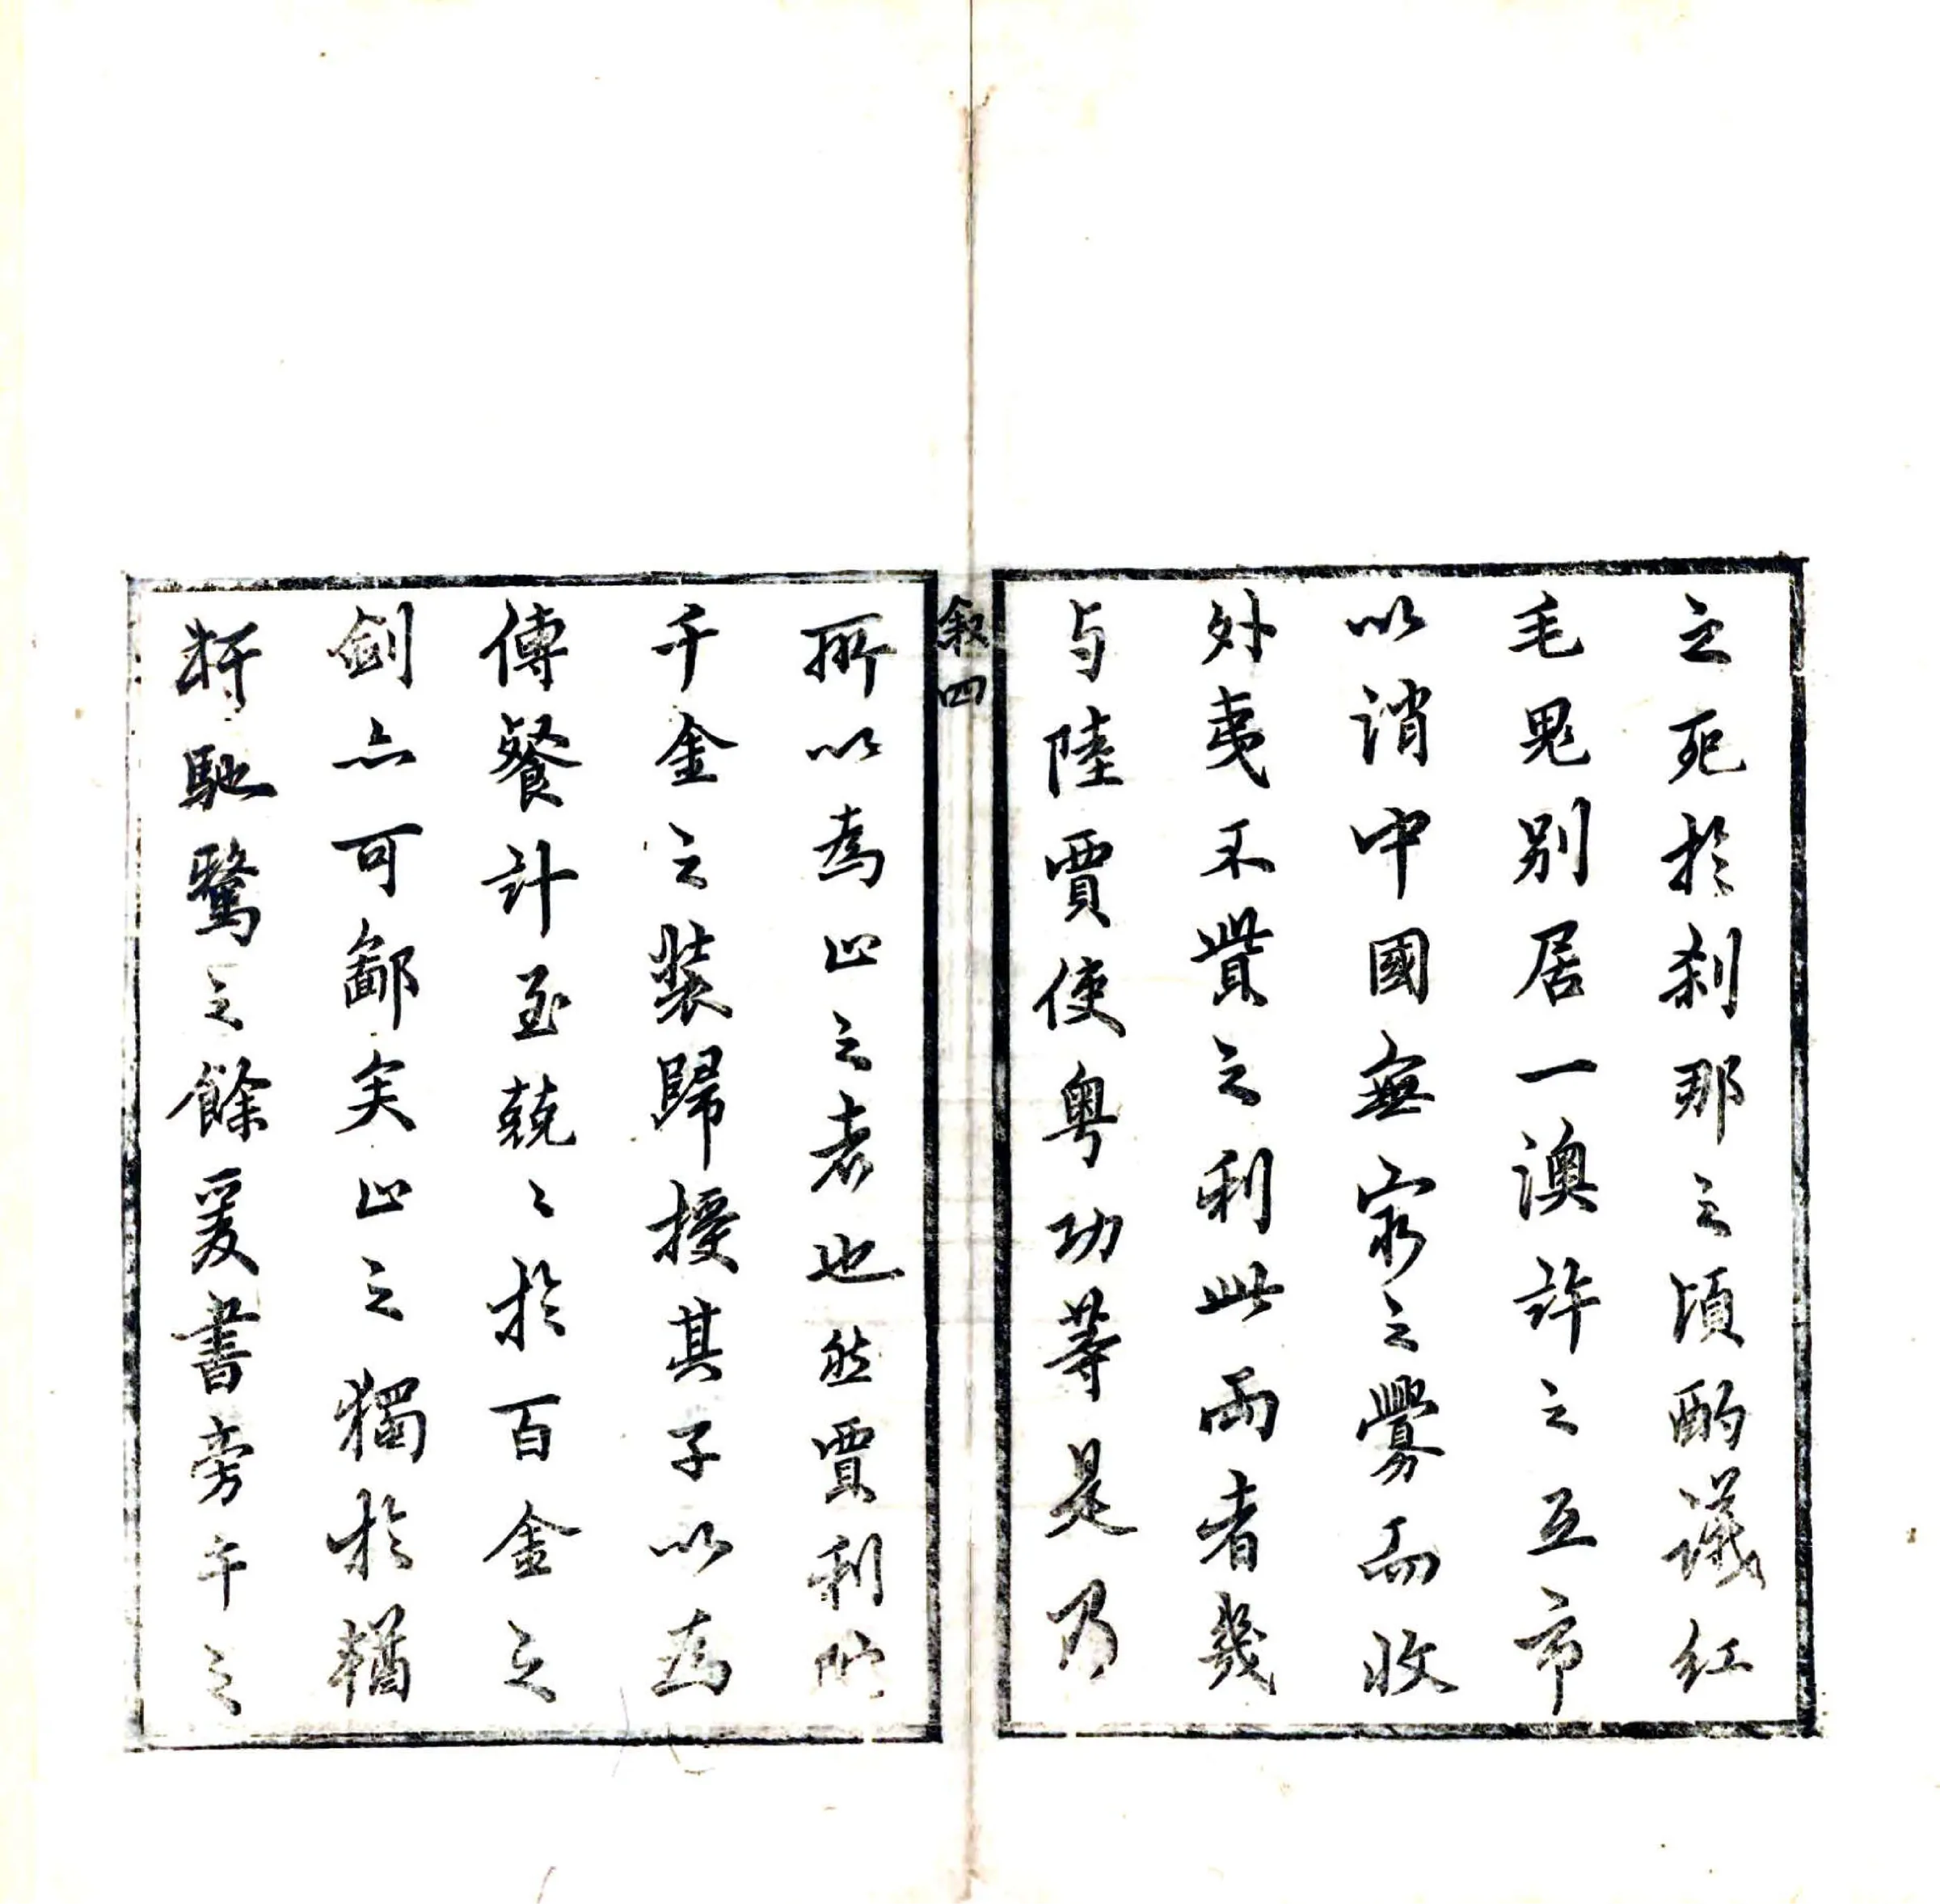 之死於刹那之頃酌議紅
毛鬼別居一澳許之互市
以消中國無窮之釁而收
外夷不貲之利此兩者幾
与陸賈使粵功等是乃
叙四
所以為止之者也然賈利佗
千金之裝歸授其子以為
傳餐計至兢〻於百金之
劍亦可鄙矣止之獨於輶
軒馳騖之餘爰書旁午之